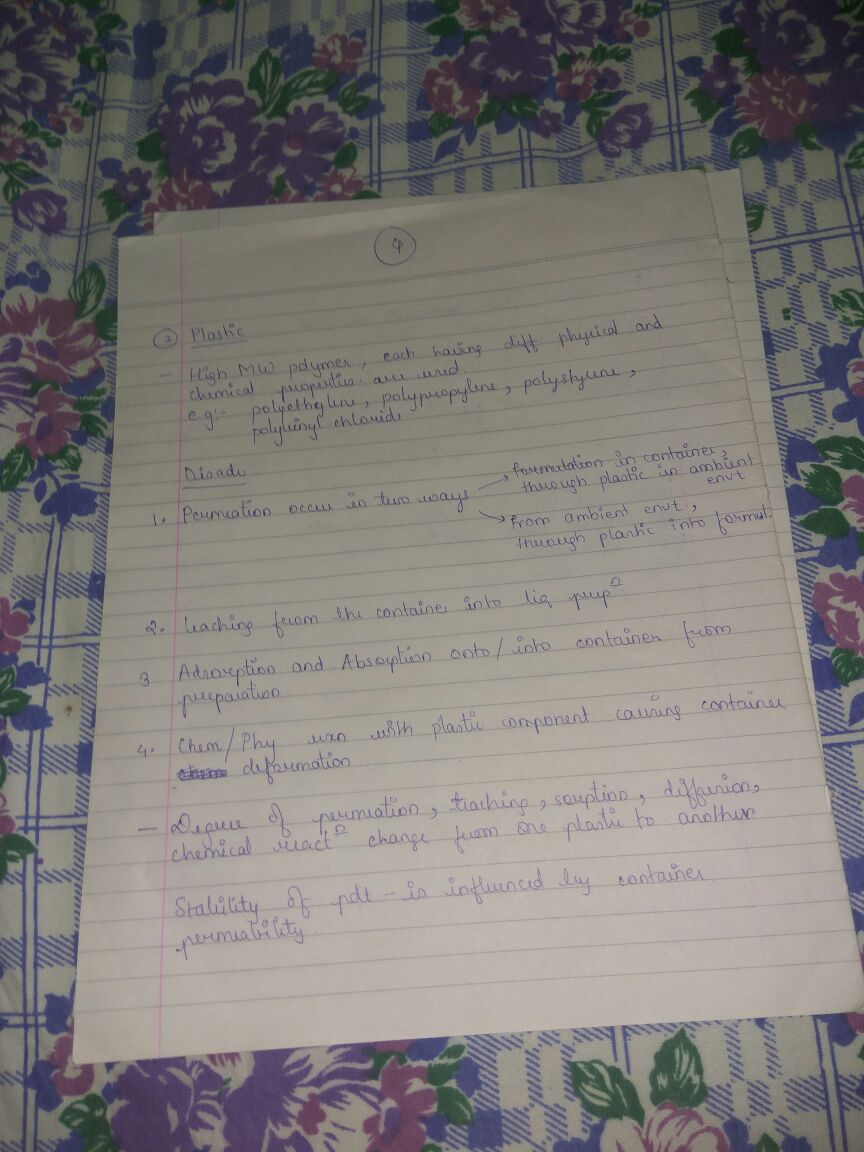 4
② Plastic
– High MW polymer, each having diff. physical and
chemical properties are used.
e.g:- polyethyline, polypropyline, polystyrene,
polyvinyl chloride.
Disadv
1. Permeation occur in two ways → formulation in container,
through plastic in ambient
envt
→ from ambient envt,
through plastic into formul.
2. leaching from the container into liq prepⁿ
3 Adsorption and Absorption onto/into container from
preparation
4. Chem/Phy rxn with plastic component causing container
deformation
– Degree of permeation, leaching, sorption, diffusion,
chemical reactⁿ change from one plastic to another
Stability of pdt – is influenced by container
permeability